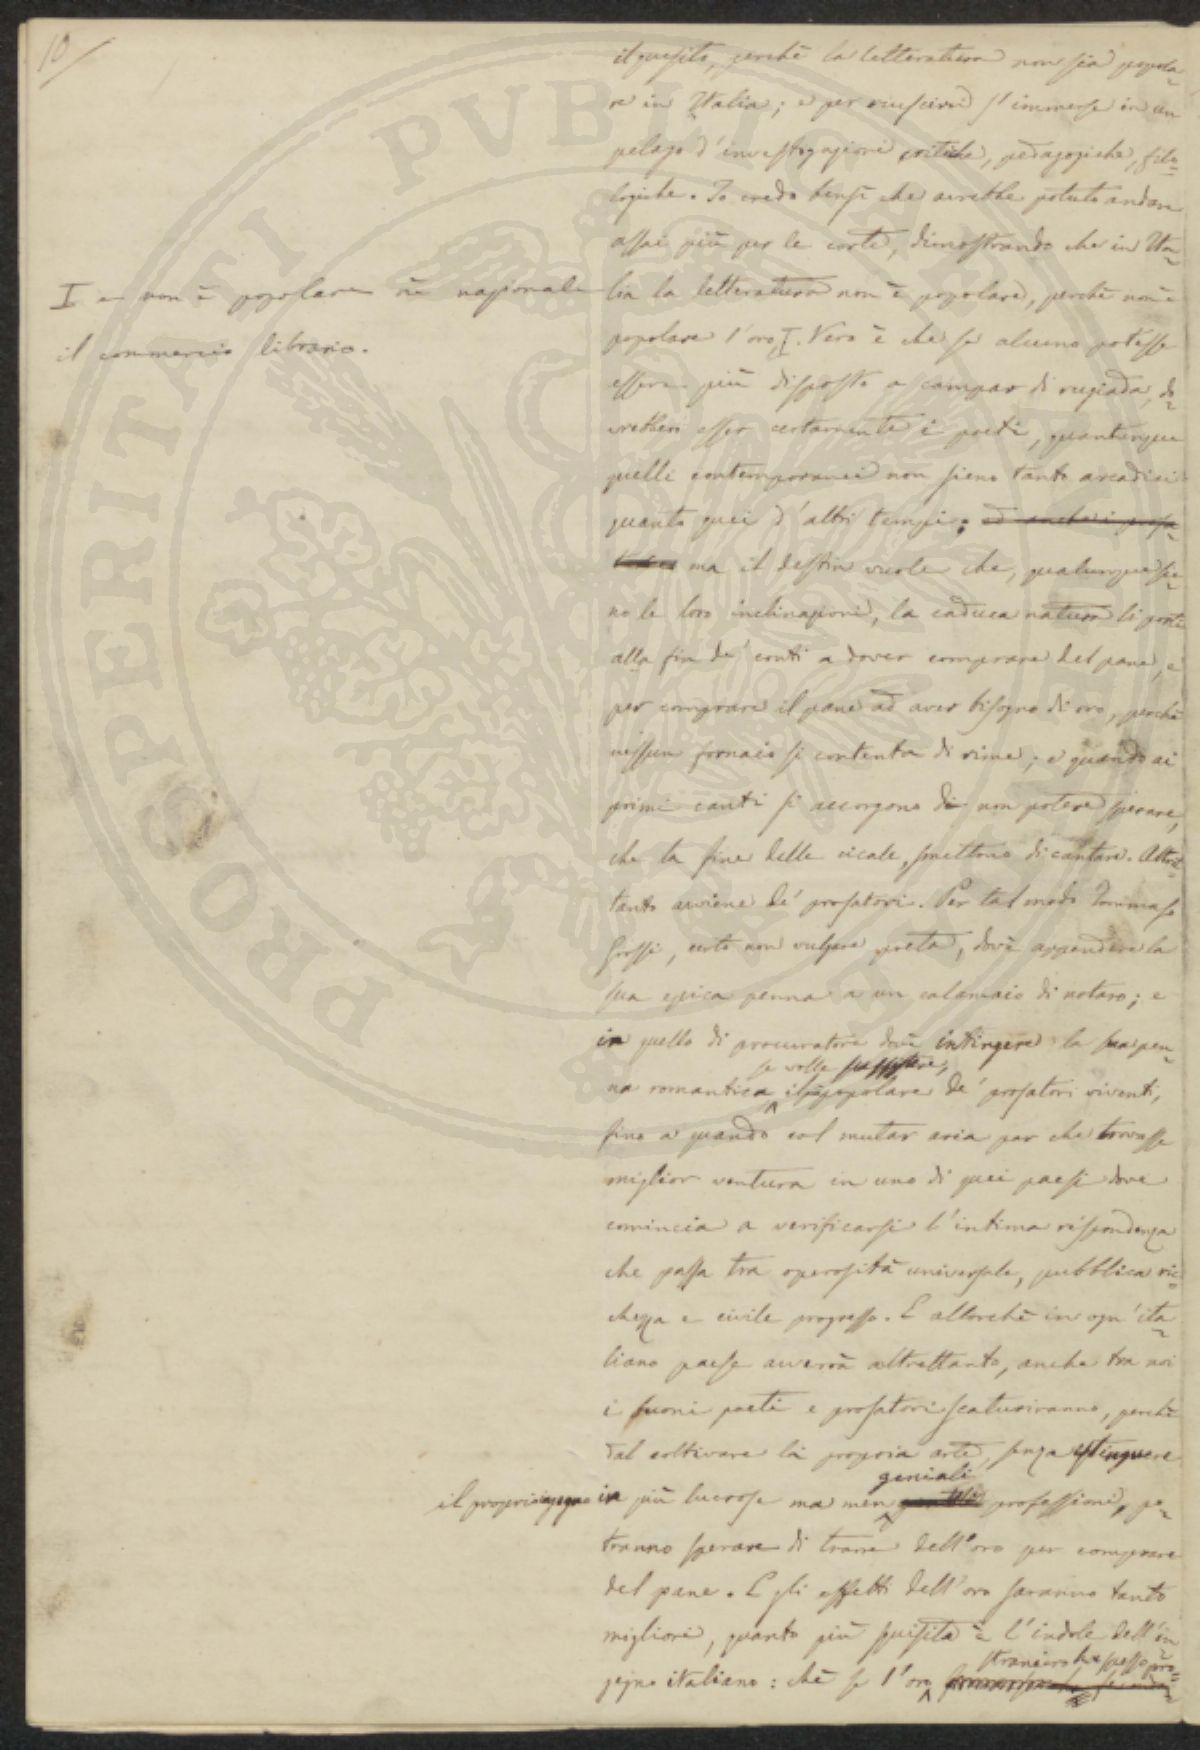 10
il quesito, perchè la letteratura non sia popola-
re in Italia; e per riuscirvi s'immerse in un
pelago d'investigazioni critiche, pedagogiche, filo-
logiche. Io credo bensì che avrebbe potuto andare
assai più per le corte, dimostrando che in Ita-
lia la letteratura non è popolare, perchè non è
popolare l'oro I. Vero è che se alcuno potesse
I e non è popolare nè nazionale
il commercio librario.
essere più disposto a campar di rugiada, do-
vrebbero esser certamente i poeti, quantunque
quelli contemporanei non sieno tanto arcadici
quanto quei d'altri tempi; ed anche i prosa-
tori ma il destin vuole che, qualunque sie-
no le loro inclinazioni, la caduca natura li porti
alla fin de' conti a dover comprare del pane, e
per comprare il pane ad aver bisogno di oro, perchè
nissun fornaio si contenta di rime; e quando ai
primi canti si accorgono di non potere sperare,
che la fine delle cicale, smettono di cantare. Altret-
tanto avviene de' prosatori. Per tal modo Tommaso
Grossi, certo non vulgare poeta, dovè appendere la
sua epica penna a un calamaio di notaro; e
in quello di procuratore dovè intingere la sua pen-
se volle sussistere,
na romantica il più popolare de' prosatori viventi,
fino a quando col mutar aria par che trovasse
miglior ventura in uno di quei paesi dove
comincia a verificarsi l'intima rispondenza
che passa tra operosità universale, pubblica ric-
chezza e civile progresso. E allorchè in ogn'ita-
liano paese avverrà altrettanto, anche tra noi
i buoni poeti e prosatori scaturiranno, perchè
dal coltivare la propria arte, senza estinguere
geniali
il proprio ingegno in più lucrose ma men gentili professioni, po-
tranno sperare di trarre dell'oro per comprare
del pane. E gli effetti dell'oro saranno tanto
migliori, quanto più squisita è l'indole dell'in-
straniero ha spesso pro-
gegno italiano: chè se l'oro